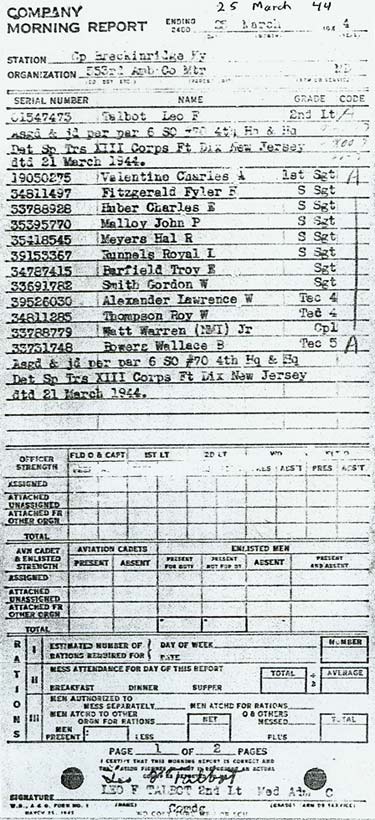 25 March 44
COMPANY
MORNING REPORT
ENDING 2400 25 March 194 4
STATION Cp Breckinridge Ky
ORGANIZATION 553rd Amb Co Mtr MD
SERIAL NUMBER NAME GRADE CODE
01547473 Talbot Leo F 2nd Lt A
Asgd & jd per par 6 SO #70 4th Hq & Hq
Det Sp Trs XIII Corps Ft Dix New Jersey
dtd 21 March 1944.
19050275 Valentine Charles A 1st Sgt A
34811497 Fitzgerald Fyler F S Sgt
33788928 Huber Charles E S Sgt
35395770 Malloy John P S Sgt
35418545 Meyers Hal R S Sgt
39153367 Runnels Royal L S Sgt
34787415 Barfield Troy E Sgt
33691782 Smith Gordon W Sgt
39526030 Alexander Lawrence W Tec 4
34811285 Thompson Roy W Tec 4
33788779 Watt Warren (NMI) Jr Cpl
33731748 Bowers Wallace B Tec 5 A
Asgd & jd per par 6 SO #70 4th Hq & Hq
Det Sp Trs XIII Corps Ft Dix New Jersey
dtd 21 March 1944.
OFFICER STRENGTH FLD O & CAPT 1ST LT 2D LT WO FLT O
PRES ABS'T PRES ABS'T
ASSIGNED
ATTACHED UNASSIGNED
ATTACHED FR OTHER ORGN
TOTAL
AVN CADET & ENLISTED STRENGTH AVIATION CADETS ENLISTED MEN
PRESENT ABSENT PRESENT FOR DUTY PRESENT NOT FOR DY ABSENT PRESENT AND ABSENT
ASSIGNED
ATTACHED UNASSIGNED
ATTACHED FR OTHER ORGN
TOTAL
RATIONS
I ESTIMATED NUMBER OF RATIONS REQUIRED FOR DAY OF WEEK DATE NUMBER
II MESS ATTENDANCE FOR DAY OF THIS REPORT TOTAL ÷ 3 AVERAGE
BREAKFAST DINNER SUPPER
III MEN AUTHORIZED TO MESS SEPARATELY MEN ATCHD FOR RATIONS
MEN ATCHD TO OTHER ORGN FOR RATIONS NET O & OTHERS MESSED TOTAL
MEN PRESENT LESS PLUS
PAGE 1 OF 2 PAGES
I CERTIFY THAT THIS MORNING REPORT IS CORRECT AND
Leo F Talbot
LEO F TALBOT 2nd Lt Med Adm C
SIGNATURE (NAME) (GRADE) (ARM OR SERVICE)
W.D., A.G.O. FORM NO. 1
MARCH 25, 1943
Cords